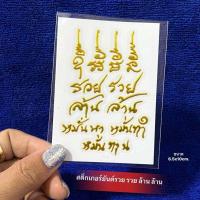 รวย รวย
ล้าน ล้าน
หมั่นหา หมั่นทำ
หมั่นทาน
ขนาด
6.5x10cm.
สติ๊กเกอร์ยันต์รวย รวย ล้าน ล้าน